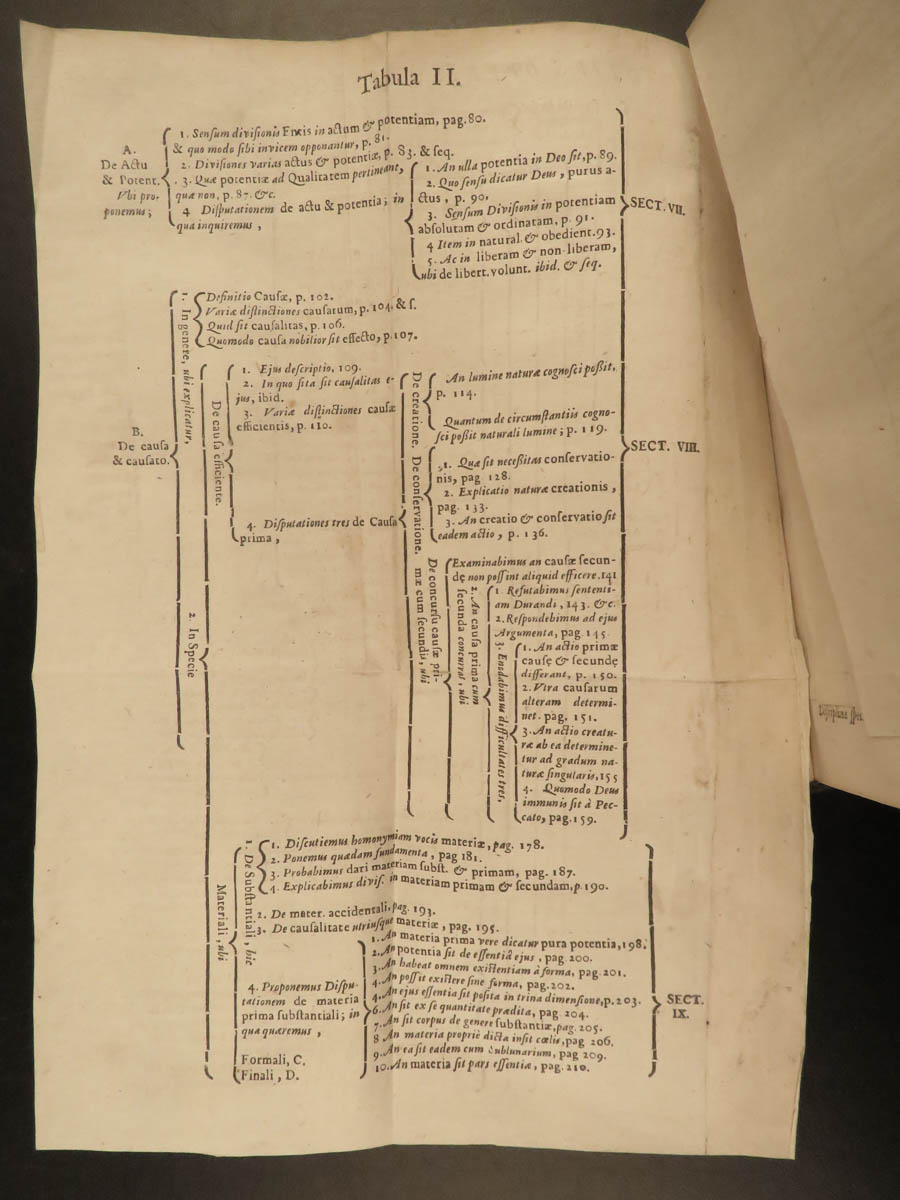 Tabula II.
A.
De Actu
& Potent.
Vbi pro-
ponemus;
1. Sensum divisionis Entis in actum & potentiam, pag. 80.
& quo modo sibi invicem opponantur, p. 81.
2. Divisiones varias actus & potentiæ, p. 83. & seq.
3. Quæ potentiæ ad Qualitatem pertineant,
quæ non, p. 87. &c.
4 Disputationem de actu & potentia; in
qua inquiremus,
1. An ulla potentia in Deo sit, p. 89.
2. Quo sensu dicatur Deus, purus a-
ctus, p. 90,
3. Sensum Divisionis in potentiam
absolutam & ordinatam, p. 91.
4 Item in natural. & obedient. 93.
5. Ac in liberam & non liberam,
ubi de libert. volunt. ibid. & seq.
SECT. VII.
B.
De causa
& causato.
1. In genere, ubi explicatur,
Definitio Causæ, p. 102.
Variæ distinctiones causarum, p. 104. & s.
Quid sit causalitas, p. 106.
Quomodo causa nobilior sit effecto, p. 107.
2. In Specie
De causa efficiente.
1. Ejus descriptio, 109.
2. In quo sita sit causalitas e-
jus, ibid.
3. Variæ distinctiones causæ
efficientis, p. 110.
4. Disputationes tres de Causa
prima,
De creatione.
An lumine naturæ cognosci poßit,
p. 114.
Quantum de circumstantiis cogno-
sci poßit naturali lumine; p. 119.
De conservatione.
1. Quæ sit neceßitas conservatio-
nis, pag 128.
2. Explicatio naturæ creationis,
pag. 133.
3. An creatio & conservatio sit
eadem actio, p. 136.
De concursu causæ pri-
mæ cum secundis, ubi
Examinabimus an causæ secun-
dę non possint aliquid efficere. 141
2. An causa prima cum
secunda concurrat, ubi
1. Refutabimus sententi-
am Durandi, 143. &c.
2. Respondebimus ad ejus
Argumenta, pag. 145.
3. Enodabimus difficultates tres,
1. An actio primæ
causę & secundę
differant, p. 150.
2. Vtra causarum
alteram determi-
net. pag. 151.
3. An actio creatu-
ræ ab ea determine-
tur ad gradum na-
turæ singularis, 155
4. Quomodo Deus
immunis sit à Pec-
cato, pag. 159.
SECT. VIII.
Materiali, ubi
1. De Substantiali, hic
1. Discutiemus homonymiam vocis materiæ, pag. 178.
2. Ponemus quædam fundamenta, pag 181.
3. Probabimus dari materiam subst. & primam, pag. 187.
4. Explicabimus divis. in materiam primam & secundam, p. 190.
2. De mater. accidentali. pag. 193.
3. De causalitate utriusque materiæ, pag. 195.
4. Proponemus Dispu-
tationem de materia
prima substantiali; in
qua quæremus,
1. An materia prima vere dicatur pura potentia, 198.
2. An potentia sit de essentiâ ejus, pag 200.
3. An habeat omnem existentiam à forma, pag. 201.
4. An possit existere sine forma, pag. 202.
4. An ejus essentia sit posita in trina dimensione, p. 203.
6. An sit ex se quantitate prædita, pag 204.
7. An sit corpus de genere substantiæ, pag. 205.
8 An materia propriè dicta insit cœlis, pag 206.
9. An ea sit eadem cum sublunarium, pag 209.
10. An materia sit pars essentiæ, pag. 210.
Formali, C.
Finali, D.
SECT.
IX.